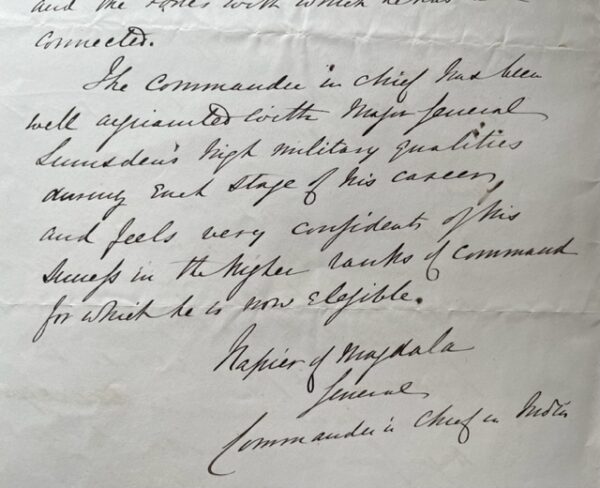 and the        with which he has
connected.
The Commander in Chief has been
well acquainted with Major General
Lumsden's high military qualities
during each stage of his career,
and feels very confident of his
success in the higher ranks of command
for which he is now eligible.
Napier of Magdala
General
Commander in Chief in India